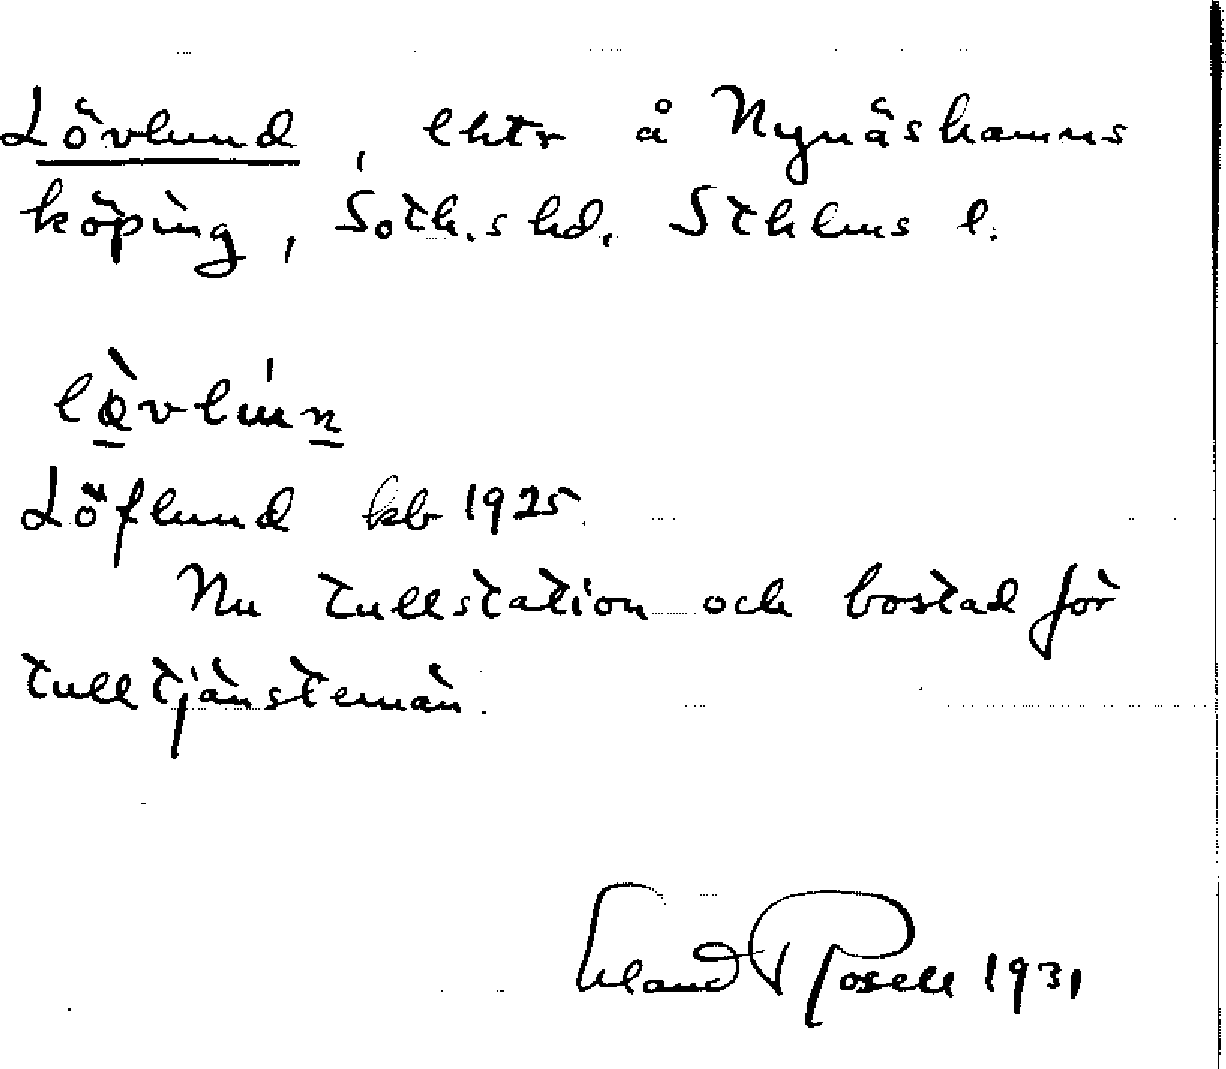 Lövlund, lht å Nynäshamns
köping, Soth.s hd. Sthlms l.
lø̀vlún
Löflund kb 1925.
Nu tullstation och bostad för
tulltjänstemän.
Erland Rosell 1931